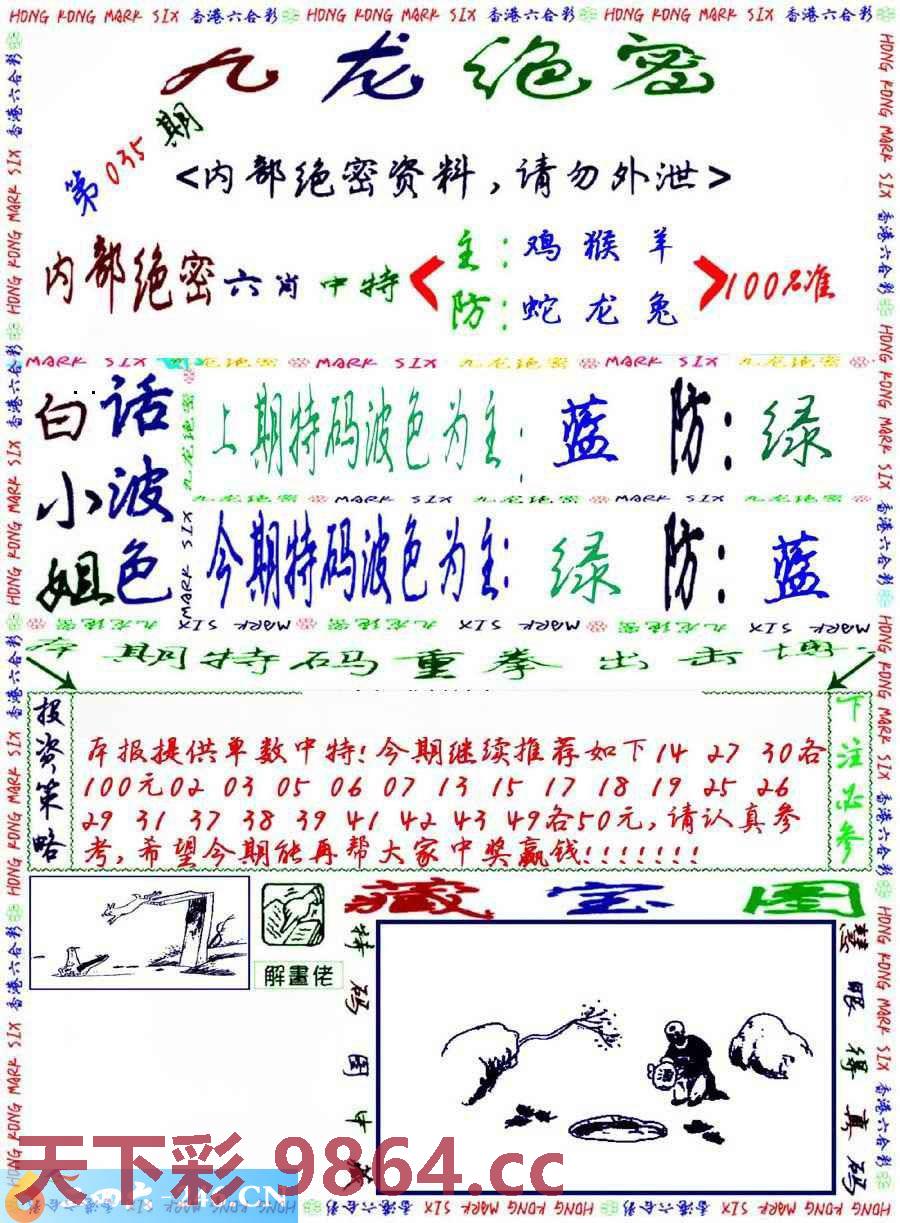 HONG KONG MARK SIX 香港六合彩 HONG KONG MARK SIX 香港六合彩 HONG KONG MARK SIX 香港六合彩
九龙绝密
第035期
<内部绝密资料,请勿外泄>
内部绝密六肖中特
主:鸡猴羊
防:蛇龙兔
100%准
MARK SIX 九龙绝密 MARK SIX 九龙绝密 MARK SIX 九龙绝密
白小姐
话波色
上期特码波色为主:蓝 防:绿
九龙绝密 MARK SIX 九龙绝密 MARK SIX 九龙绝密
今期特码波色为主:绿 防:蓝
九龙绝密 MARK SIX 九龙绝密 MARK SIX 九龙绝密 MARK SIX
期特码重拳出击
投资策略
本报提供单数中特!今期继续推荐如下14 27 30各
100元02 03 05 06 07 13 15 17 18 19 25 26
29 31 37 38 39 41 42 43 49各50元,请认真参
考,希望今期能再帮大家中奖赢钱!!!!!!!
下注必参
解畫佬
藏宝图
特码图中
慧眼得真码
酒
天下彩.9864.cc
246.CN